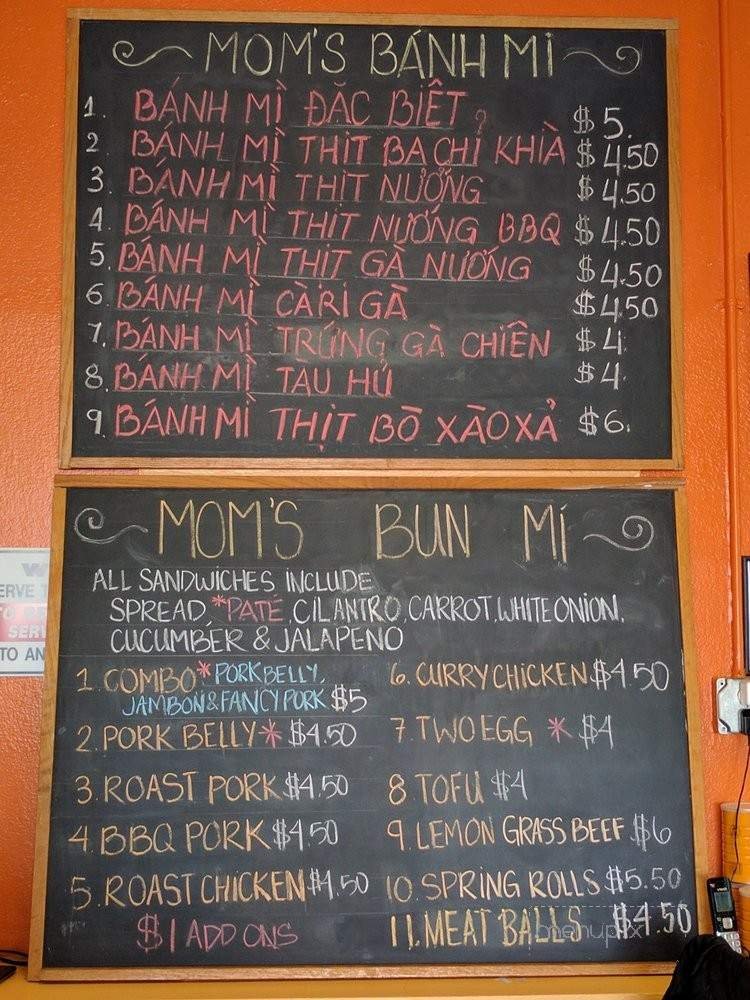 MOM'S BÁNH MÌ
1. BÁNH MÌ ĐẶC BIỆT $5.
2 BÁNH MÌ THỊT BA CHỈ KHIÀ $4.50
3. BÁNH MÌ THỊT NƯỚNG $4.50
4. BÁNH MÌ THỊT NƯỚNG BBQ $4.50
5. BÁNH MÌ THỊT GÀ NƯỚNG $4.50
6. BÁNH MÌ CÀRI GÀ $4.50
7. BÁNH MÌ TRỨNG GÀ CHIÊN $4.
8. BÁNH MÌ TAU HỦ $4.
9 BÁNH MÌ THỊT BÒ XÀO XẢ $6.
MOM'S BUN MÍ
ALL SANDWICHES INCLUDE
SPREAD, *PATÉ, CILANTRO, CARROT, WHITE ONION,
CUCUMBER & JALAPENO
1. COMBO * PORK BELLY,
JAMBON & FANCY PORK $5
2. PORK BELLY * $4.50
3. ROAST PORK $4.50
4. BBQ PORK $4.50
5. ROAST CHICKEN $4.50
$1 ADD ONS
6. CURRY CHICKEN $4.50
7 TWO EGG * $4
8 TOFU $4
9. LEMON GRASS BEEF $6
10. SPRING ROLLS $5.50
11. MEAT BALLS $4.50
menupix